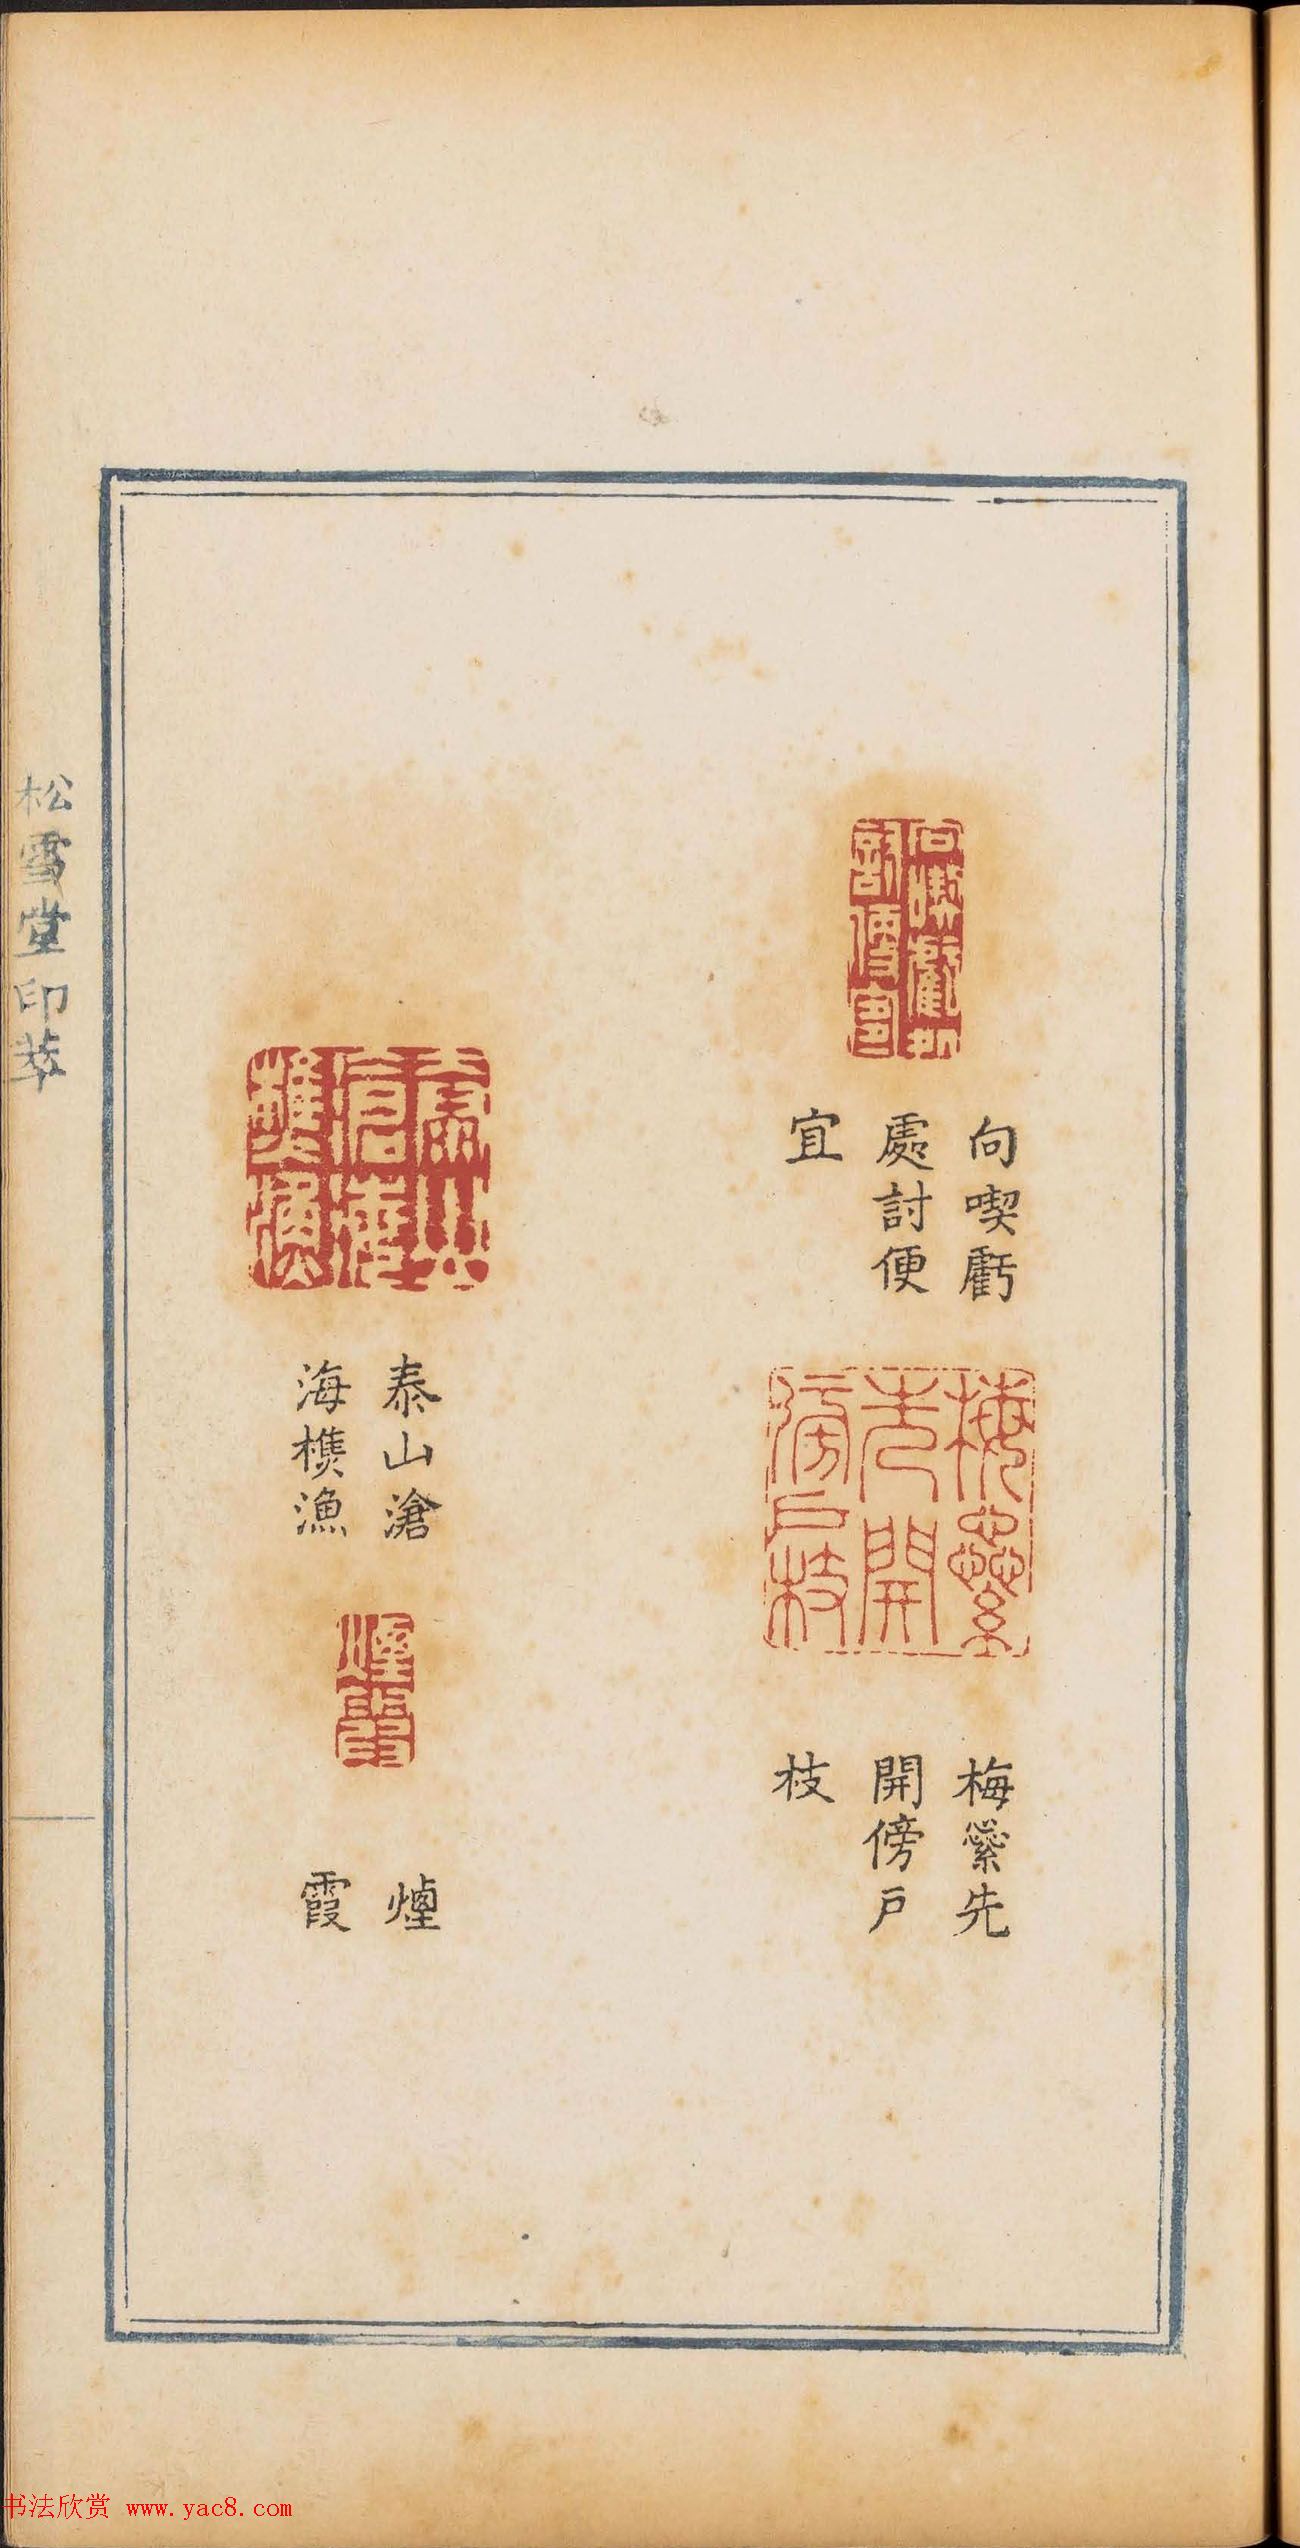 向喫虧
處討便
宜
梅蘂先
開傍戶
枝
泰山滄
海樵漁
煙
霞
松雪堂印萃
书法欣赏 www.yac8.com